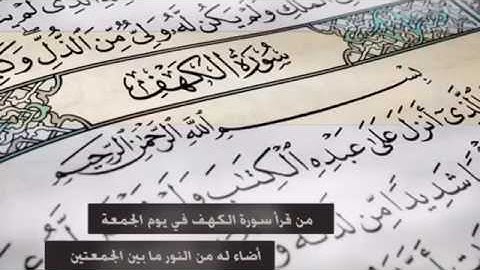 ٱلَّذِى لَمْ
ٱلْمُلْكِ وَلَمْ يَكُن لَّهُۥ وَلِىٌّ مِّنَ ٱلذُّلِّ
سُورَةُ الْكَهْفِ
بِسْمِ ٱللَّهِ ٱلرَّحْمَٰنِ ٱلرَّحِيمِ
ٱلَّذِىٓ أَنزَلَ عَلَىٰ عَبْدِهِ ٱلْكِتَٰبَ وَلَمْ
شَدِيدًا مِّن لَّدُنْهُ
من قرأ سورة الكهف في يوم الجمعة
أضاء له من النور ما بين الجمعتين